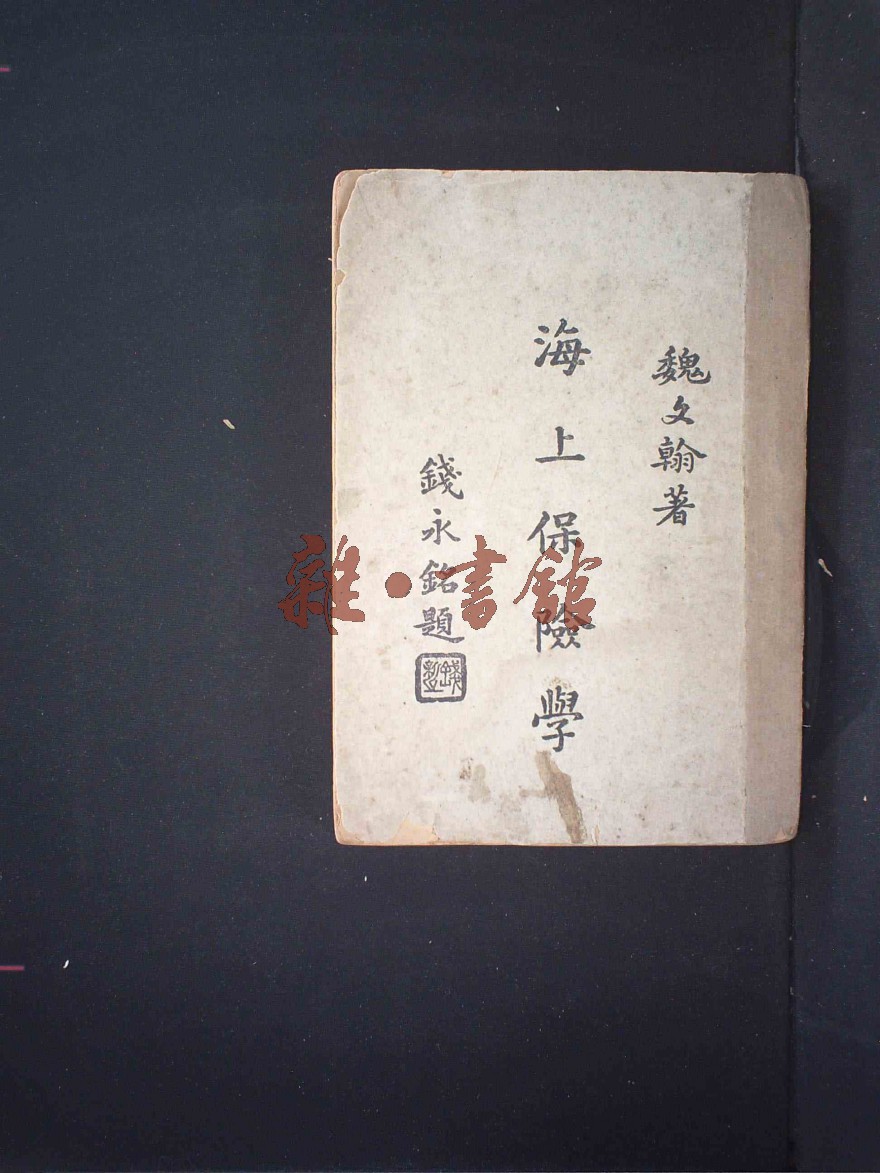 魏文翰著
海上保險學
錢永銘題
雜·書館